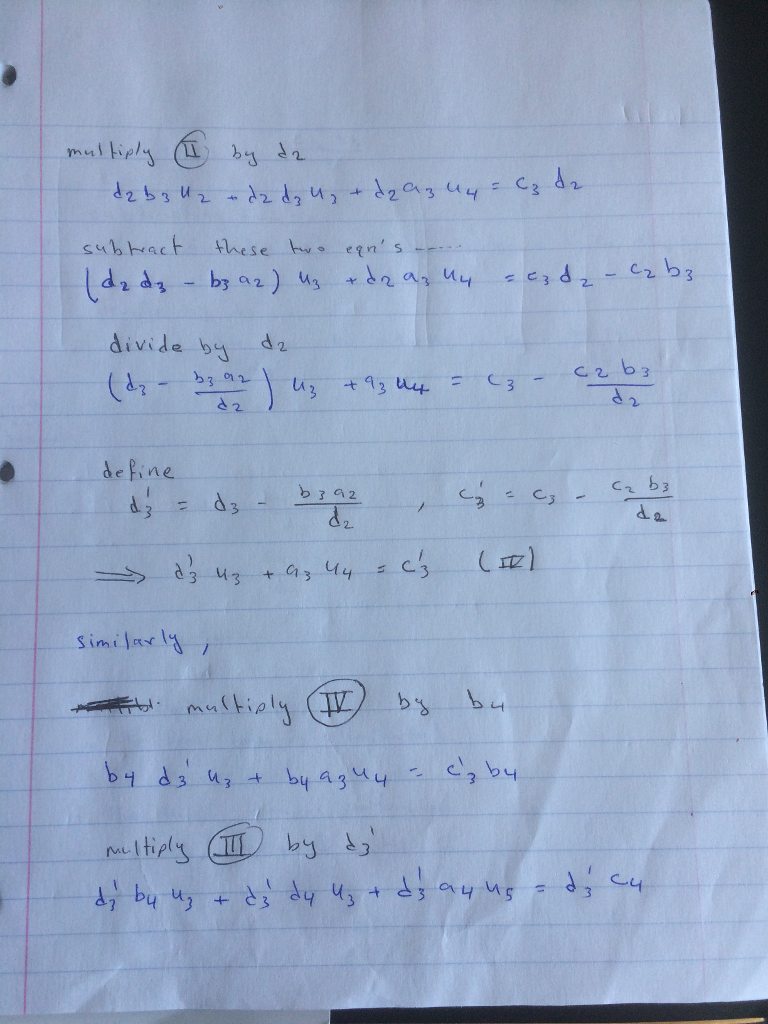 multiply (II) by d2
d2 b3 u2 + d2 d3 u3 + d2 a3 u4 = c3 d2
subtract these two eqn's -----
(d2 d3 - b3 a2) u3 + d2 a3 u4 = c3 d2 - c2 b3
divide by d2
(d3 - b3 a2 / d2) u3 + a3 u4 = c3 - c2 b3 / d2
define
d3' = d3 - b3 a2 / d2 , c3' = c3 - c2 b3 / d2
⟹ d3' u3 + a3 u4 = c3' (IV)
similarly,
multiply (IV) by b4
b4 d3' u3 + b4 a3 u4 = c3' b4
multiply (III) by d3'
d3' b4 u3 + d3' d4 u3 + d3' a4 u5 = d3' c4